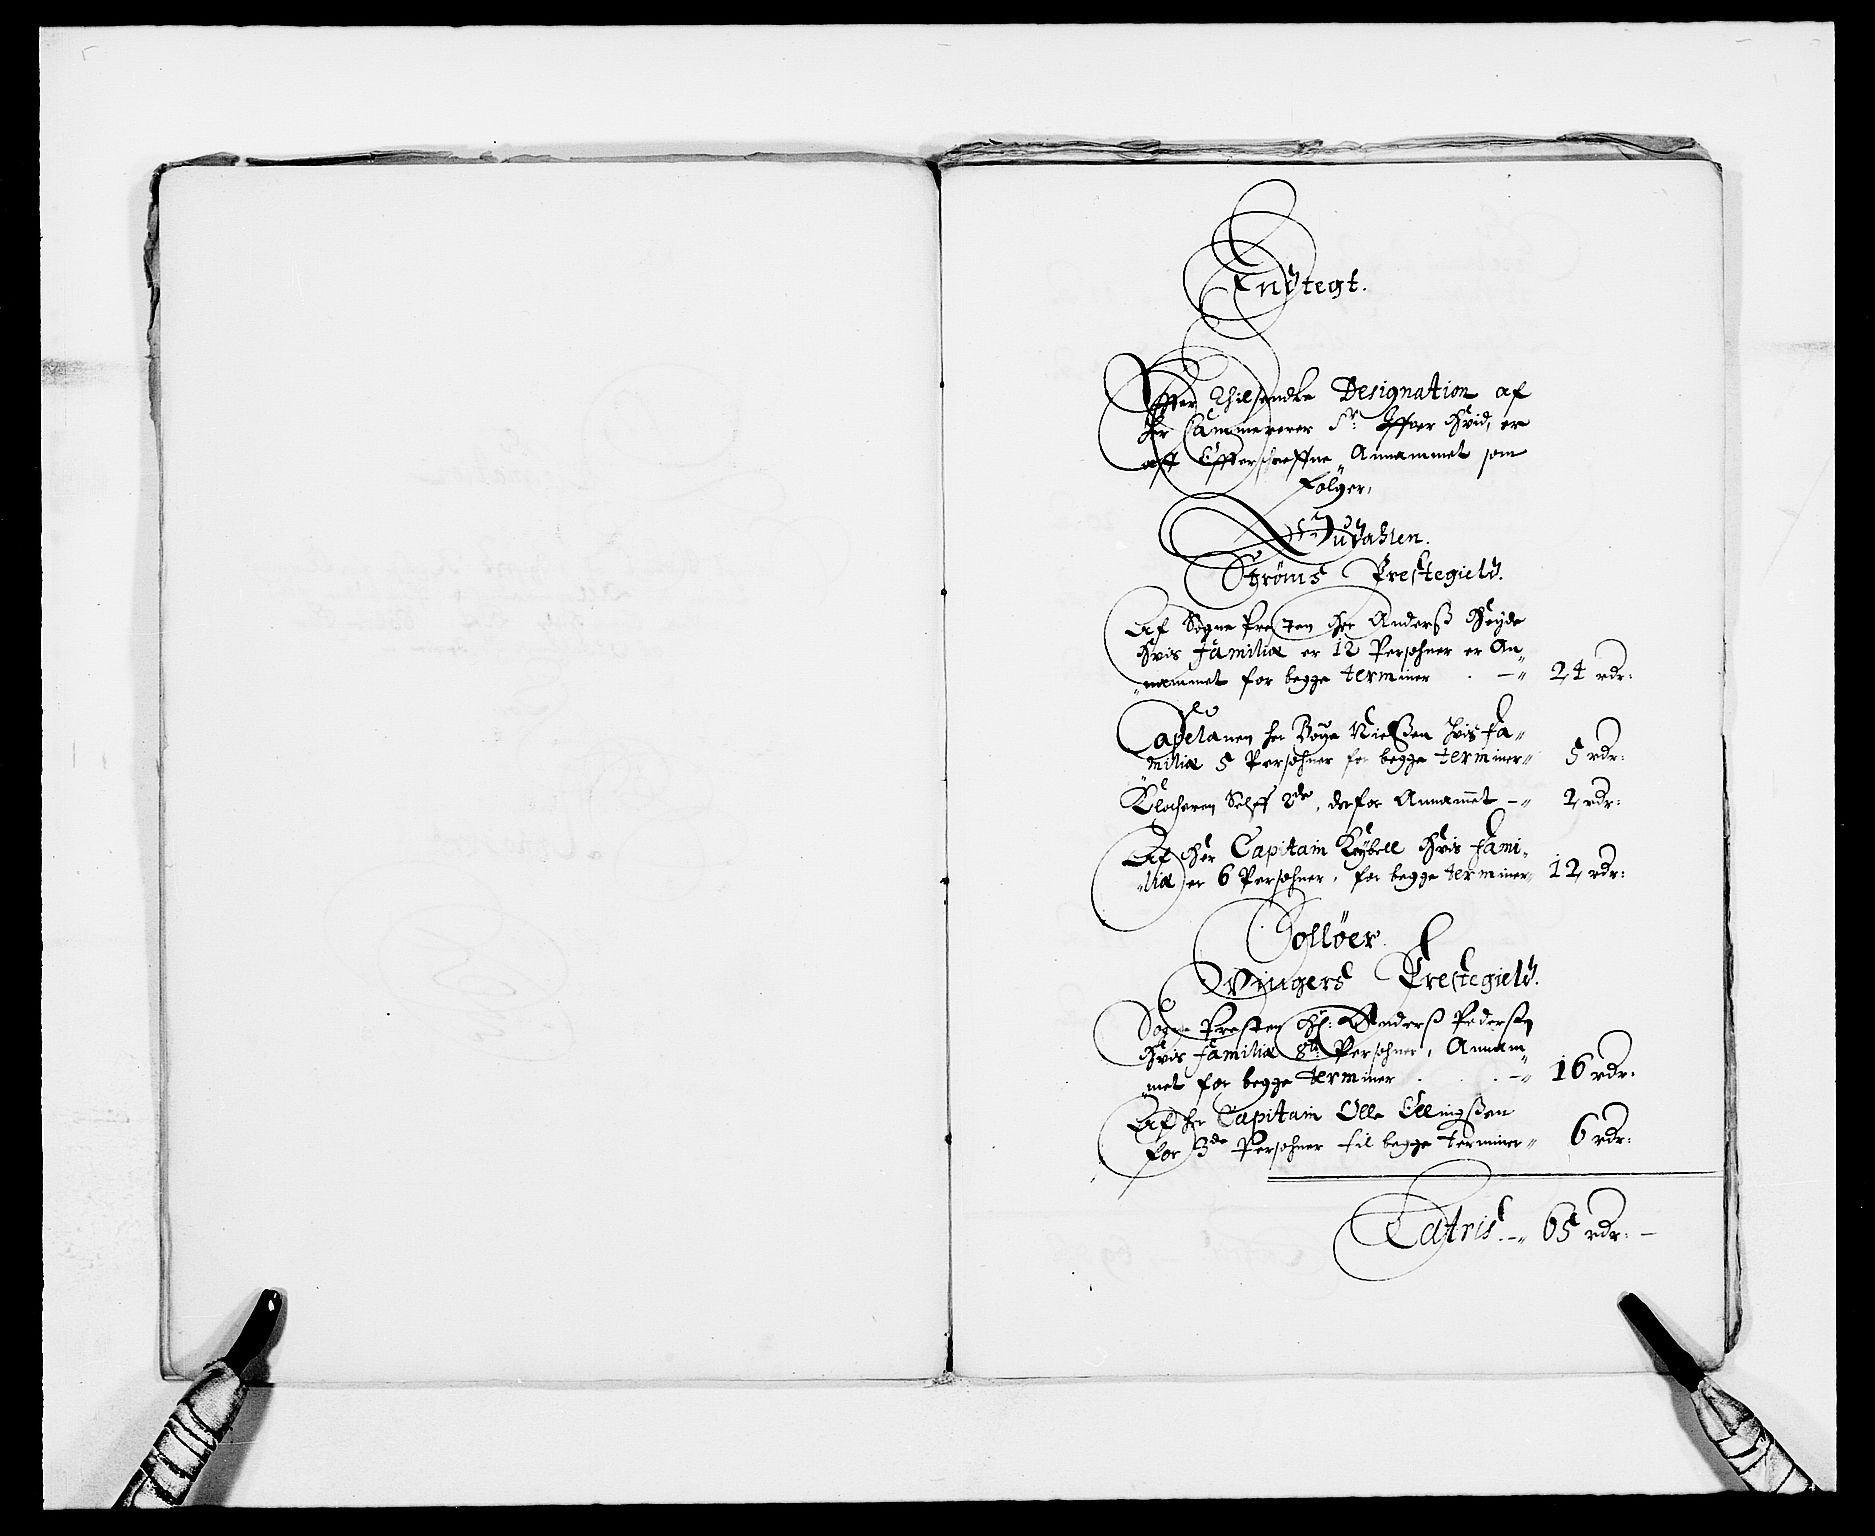 Indtegt.
Effter thilsendte Designation af
Hr Cammererer Sr: Iffver Hvid, er
aff Effterschreffne Annammet som
Følger,
Oudahlen.
Strøms Prestegield.
Af Sogne Presten Her Anderß Heyde
Hvis familiæ er 12 Persohner er An„
„nammet for begge terminer . —„ 24 rdr:
Capelanen her Boye Nielßen hvis fa„
miliæ 5 Persohner for begge terminer„ 5 rdr:
Klocheren Selff 2de, derfor Annam̄et —„ 2 rdr:
Af Her Capitain Keybell Hvis fami„
„liæ er 6 Persohner, for begge terminer„ 12 rdr:
Solløer.
Vingers Prestegield.
Sogne Presten Hr: Anderß Pederßen
Hvis familiæ 8te Persohner, Annam„
met for begge terminer . . —„ 16 rdr:
Af her Capitain Olle Ellingßen
for 3de Persohner til begge terminer„ 6 rdr:
Latris. —„ 65 rdr: —